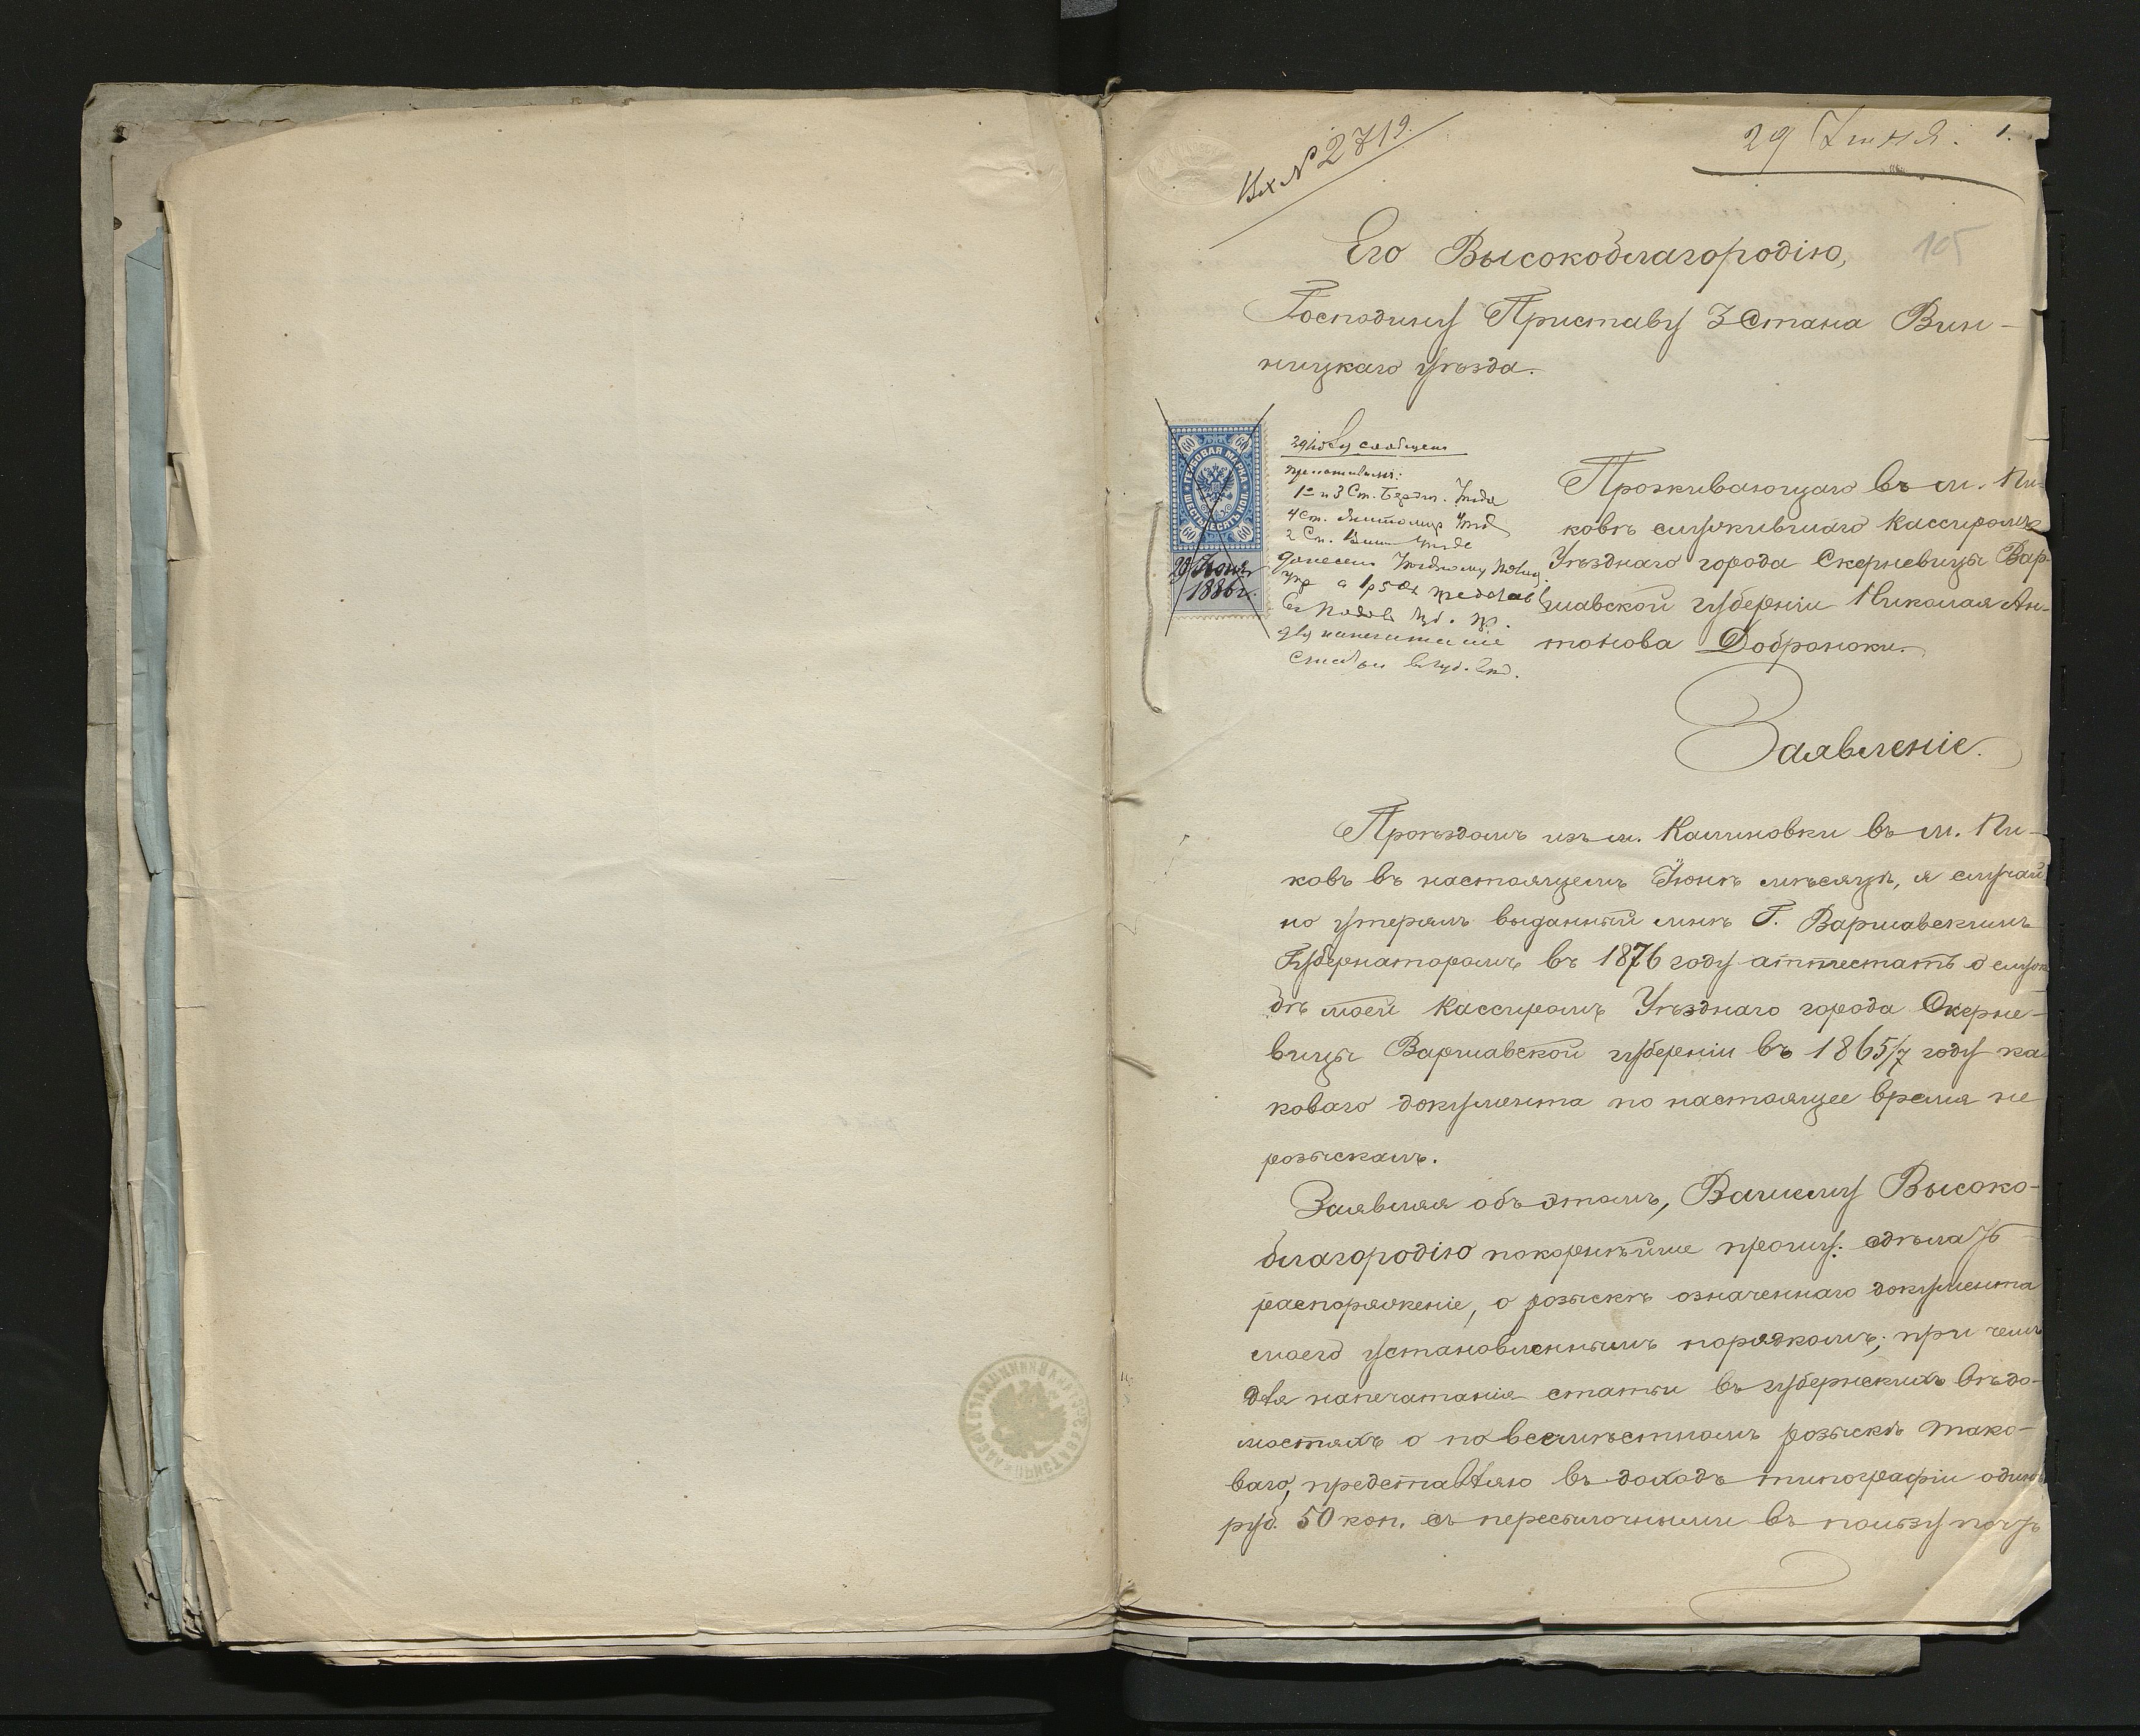 Вх № 2719.
29 Іюня.
1.
105
Его Высокоблагородію,
Господину Приставу 3 Стана Вин-
ницкаго уѣзда.
ГЕРБОВАЯ МАРКА
ШЕСТЬДЕСЯТЪ КОП.
60 60
60 60
29 Іюня
1886 г.
29 Іюня сообщено
приставамъ:
1 и 3 Ст. Бердич. Уѣзда
4 Ст. Житомир. Уѣзд
2 Ст. Винн Уѣзда
донесено Уѣздному Полиц.
упр с 1 р 50 к представ
для напечатаніе
статьи въ губ. вѣд.
Проживающаго въ м. Пи-
ковѣ служившаго Кассиромъ
Уѣзднаго города Скерневицы Вар-
шавской губерніи Николая Ан-
тонова Доброноки.
Заявленіе.
Проѣздомъ изъ м. Калиновки въ м. Пи-
ковъ въ настоящемъ Іюнѣ мѣсяцѣ, я случай-
но утерялъ выданный мнѣ Г. Варшавскимъ
Губернаторомъ въ 1876 году аттестатъ о служ-
бѣ моей Кассиромъ Уѣзднаго города Скерне-
вицы Варшавской губерніи въ 1865/7 году ка-
коваго документа по настоящее время не
розыскалъ.
Заявляя объ этомъ, Вашему Высоко-
благородію покорнѣйше прошу: сдѣлать
распоряженіе, о розыскѣ означеннаго документа
моего установленнымъ порядкомъ; при чемъ
для напечатанія статьи въ губернскихъ вѣдо-
мостяхъ о повсемѣстномъ розыскѣ тако-
ваго, представляю въ доходъ типографіи одинъ
руб. 50 коп. съ пересылочными въ пользу почтъ